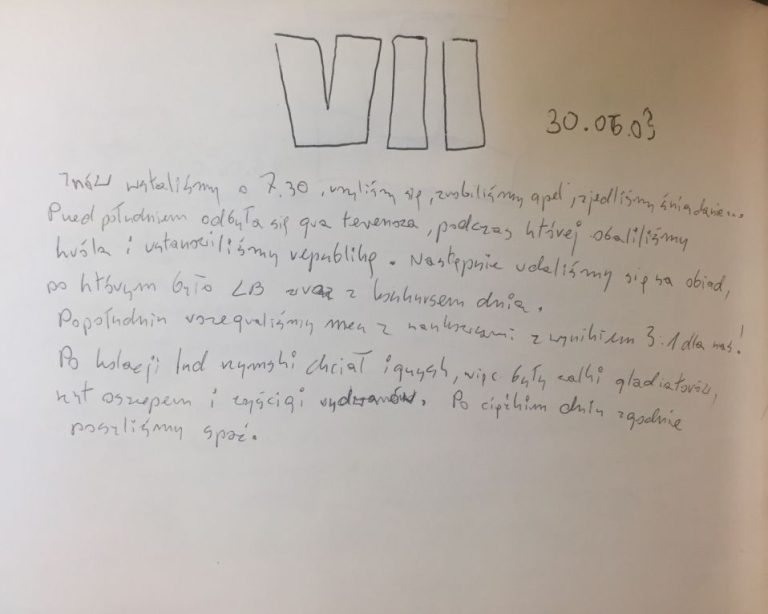 VII
30.06.03
Znów wstaliśmy o 7.30, umyliśmy się, zrobiliśmy apel, zjedliśmy śniadanie...
Przed południem odbyła się gra terenoza, podczas której obaliliśmy
króla i ustanowiliśmy republikę. Następnie udaliśmy się na obiad,
po którym było LB wraz z konkursem dnia.
Popołudniu rozegraliśmy mecz z z wynikiem 3:1 dla nas!
Po kolacji lud rzymski chciał igrzysk, więc były walki gladiatorów,
rzut oszczepem i wyścigi rydwanów. Po ciężkim dniu zgodnie
poszliśmy spać.